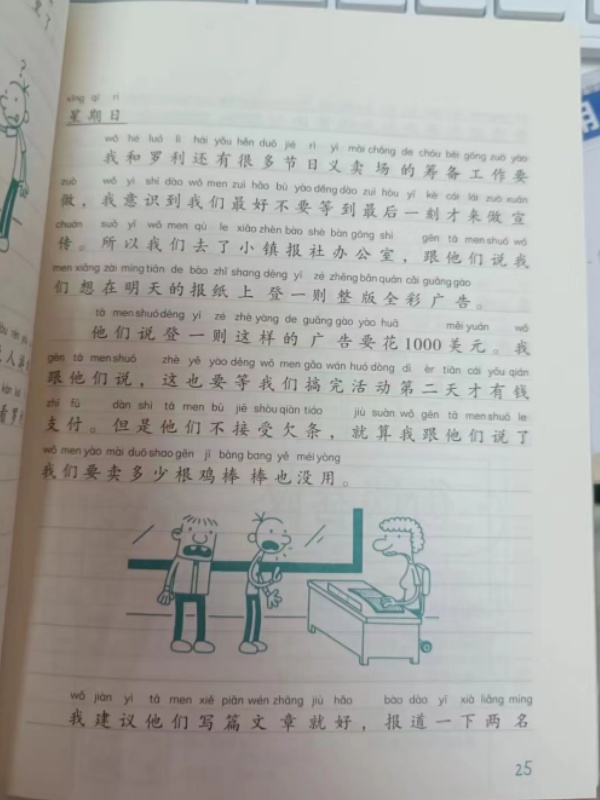 xīng qī rì
星期日
wǒ hé luó lì hái yǒu hěn duō jié rì yì mài chǎng de chóu bèi gōng zuò yào
我和罗利还有很多节日义卖场的筹备工作要
zuò wǒ yì shí dào wǒ men zuì hǎo bú yào děng dào zuì hòu yí kè cái lái zuò xuān
做，我意识到我们最好不要等到最后一刻才来做宣
chuán suǒ yǐ wǒ men qù le xiǎo zhèn bào shè bàn gōng shì gēn tā men shuō wǒ
传。所以我们去了小镇报社办公室，跟他们说我
men xiǎng zài míng tiān de bào zhǐ shang dēng yì zé zhěng bǎn quán cǎi guǎng gào
们想在明天的报纸上登一则整版全彩广告。
tā men shuō dēng yì zé zhè yàng de guǎng gào yào huā měi yuán wǒ
他们说登一则这样的广告要花1000美元。我
gēn tā men shuō zhè yě yào děng wǒ men gǎo wán huó dòng dì èr tiān cái yǒu qián
跟他们说，这也要等我们搞完活动第二天才有钱
zhī fù dàn shì tā men bù jiē shòu qiàn tiáo jiù suàn wǒ gēn tā men shuō le
支付。但是他们不接受欠条，就算我跟他们说了
wǒ men yào mài duō shao gēn jī bàng bang yě méi yòng
我们要卖多少根鸡棒棒也没用。
wǒ jiàn yì tā men xiě piān wén zhāng jiù hǎo bào dào yí xià liǎng míng
我建议他们写篇文章就好，报道一下两名
25